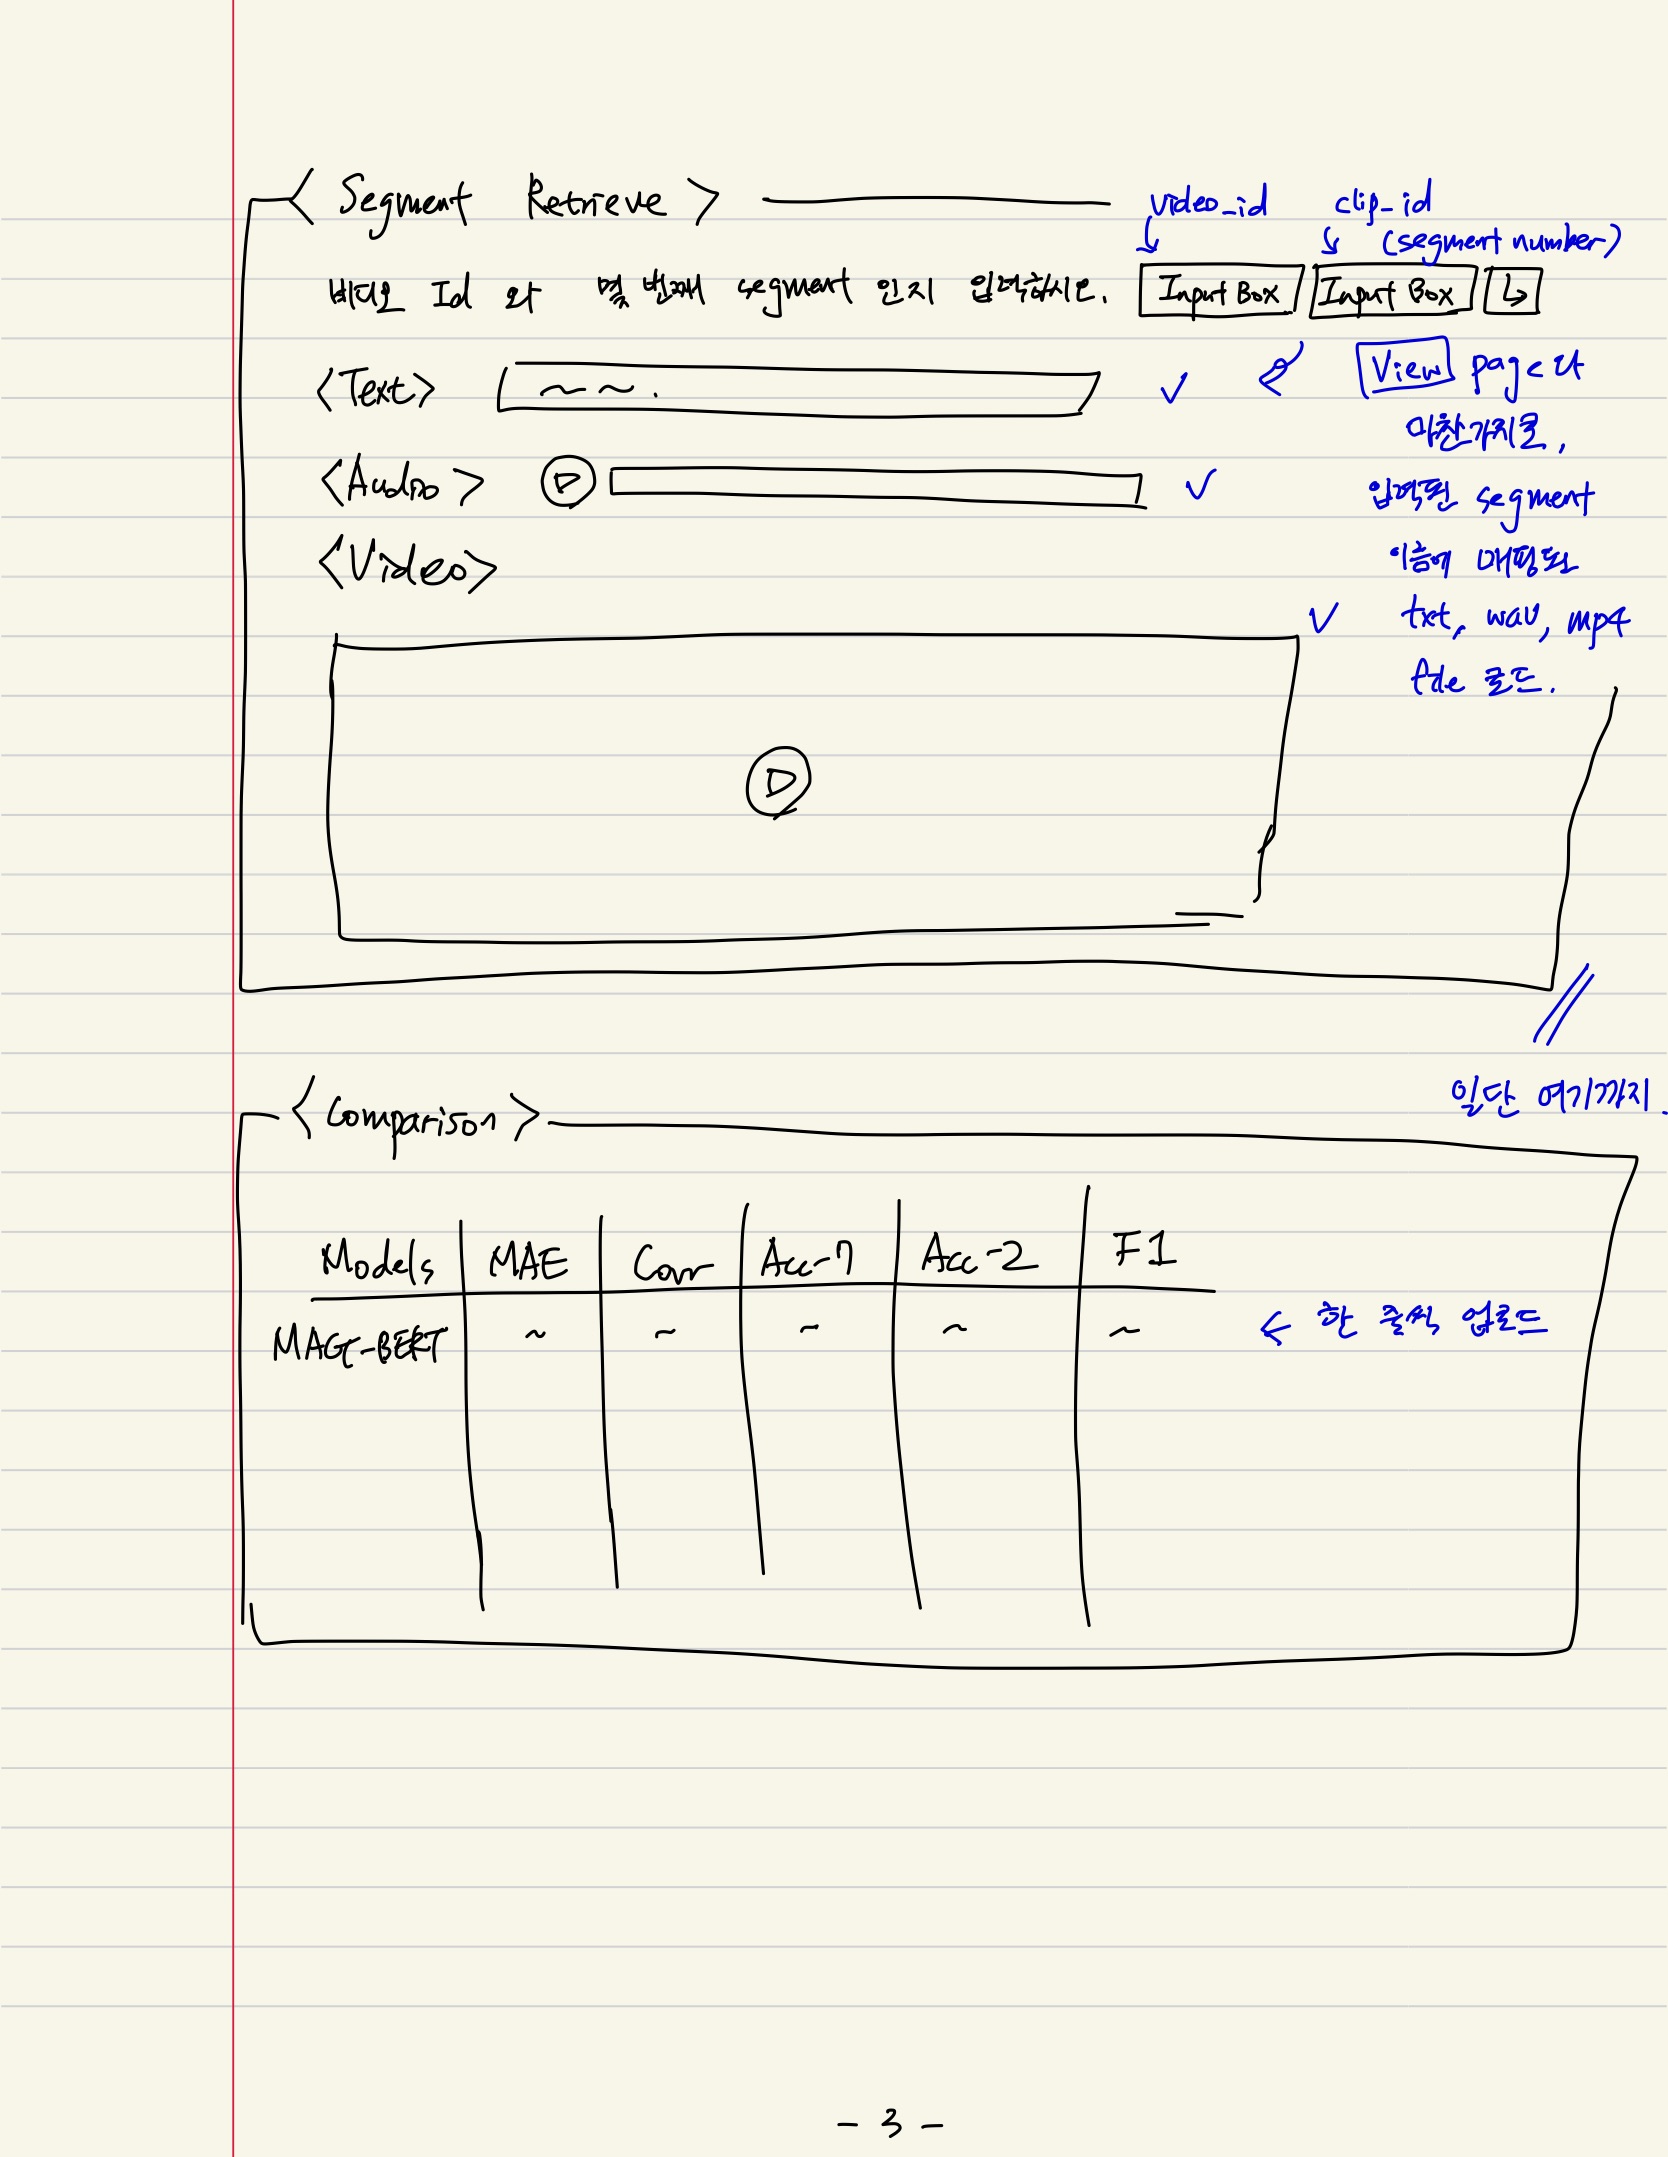 < Segment Retrieve >
video_id
clip_id
(segment number)
비디오 Id 와 몇 번째 segment 인지 입력하시오.
Input Box
Input Box
<Text>
~ ~ .
View page와
마찬가지로,
입력된 segment
이름에 매핑된
txt, wav, mp4
file 로드.
<Audio>
<Video>
일단 여기까지.
<Comparison>
Models MAE Corr Acc-7 Acc-2 F1
MAG-BERT ~ ~ ~ ~ ~
← 한 줄씩 업로드
- 3 -